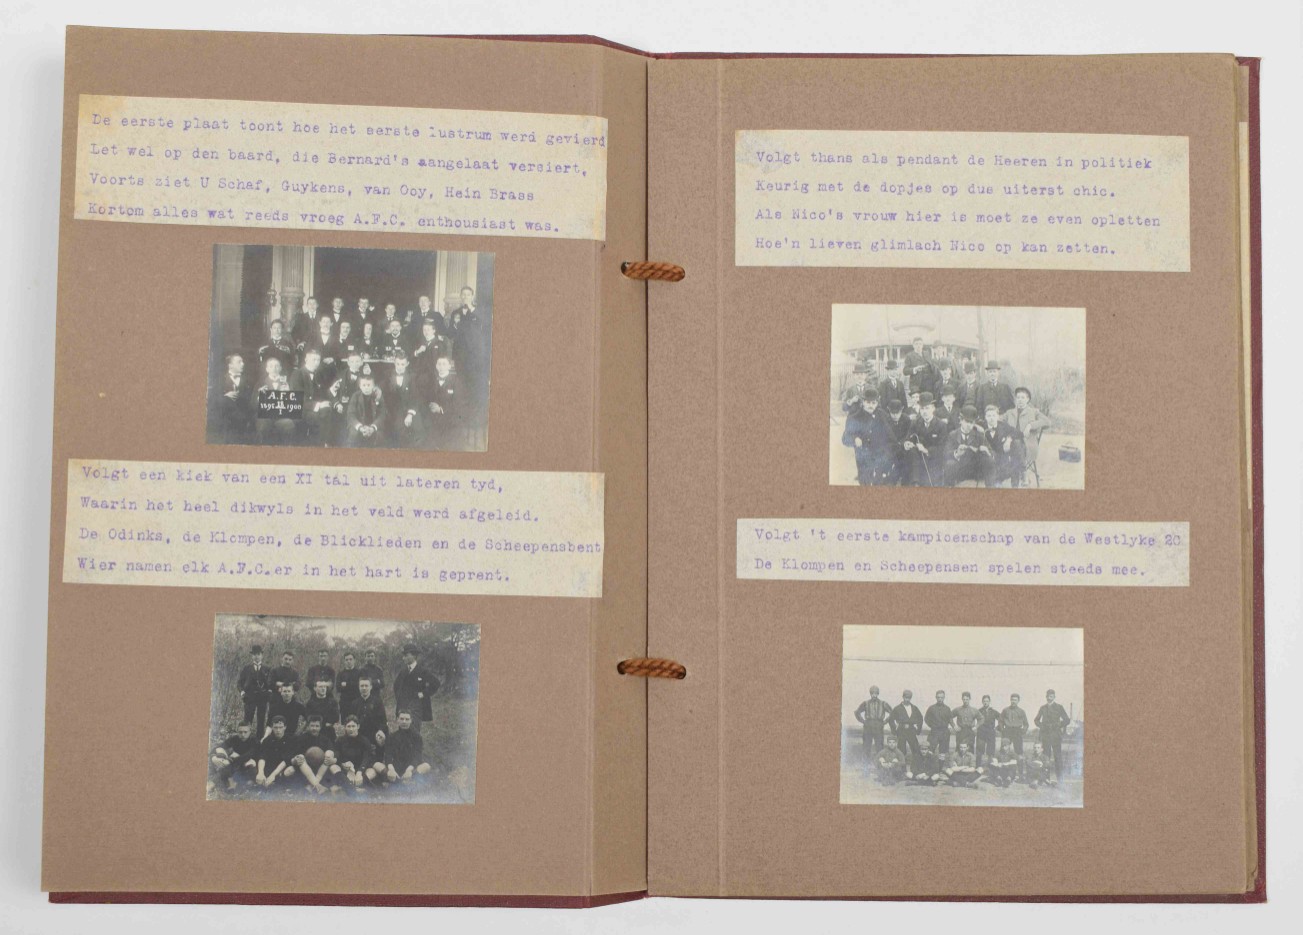 De eerste plaat toont hoe het eerste lustrum werd gevierd
Let wel op den baard, die Bernard's aangelaat versiert,
Voorts ziet U Schaf, Guykens, van Ooy, Hein Brass
Kortom alles wat reeds vroeg A.F.C. enthousiast was.
A.F.C.
1895 1900
Volgt een kiek van een XI tal uit lateren tyd,
Waarin het heel dikwyls in het veld werd afgeleid.
De Odinks, de Klompen, de Blicklieden en de Scheepensbent
Wier namen elk A.F.C.er in het hart is geprent.
Volgt thans als pendant de Heeren in politiek
Keurig met de dopjes op dus uiterst chic.
Als Nico's vrouw hier is moet ze even opletten
Hoe'n lieven glimlach Nico op kan zetten.
Volgt 't eerste kampioenschap van de Westlyke 2C
De Klompen en Scheepensen spelen steeds mee.